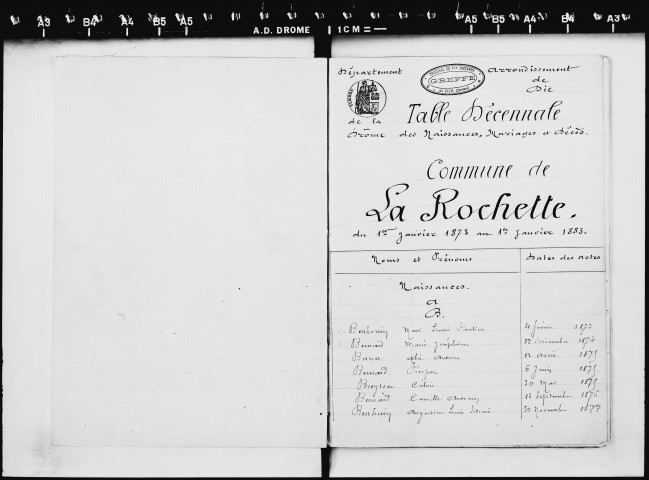 A3 B4 A4 B5 A5 A5 B5 A4 B4 A3
A.D. DROME 1 CM =
Département
Arrondissement
GREFFE
de
Die
de la
Drôme
Table Décennale
des Naissances, Mariages et Décès.
Commune de
La Rochette.
du 1er Janvier 1873 au 1er Janvier 1883.
Noms et Prénoms Dates des actes
Naissances.
A
B.
Marie Louise 4 février 1873
Bernard Marie Joséphine 12 décembre 1874
12 avril 1875
Bernard 6 Juin 1875
20 Mai 1875
Bernard Camille 13 Septembre 1876
Augustine Louise 30 Novembre 1877